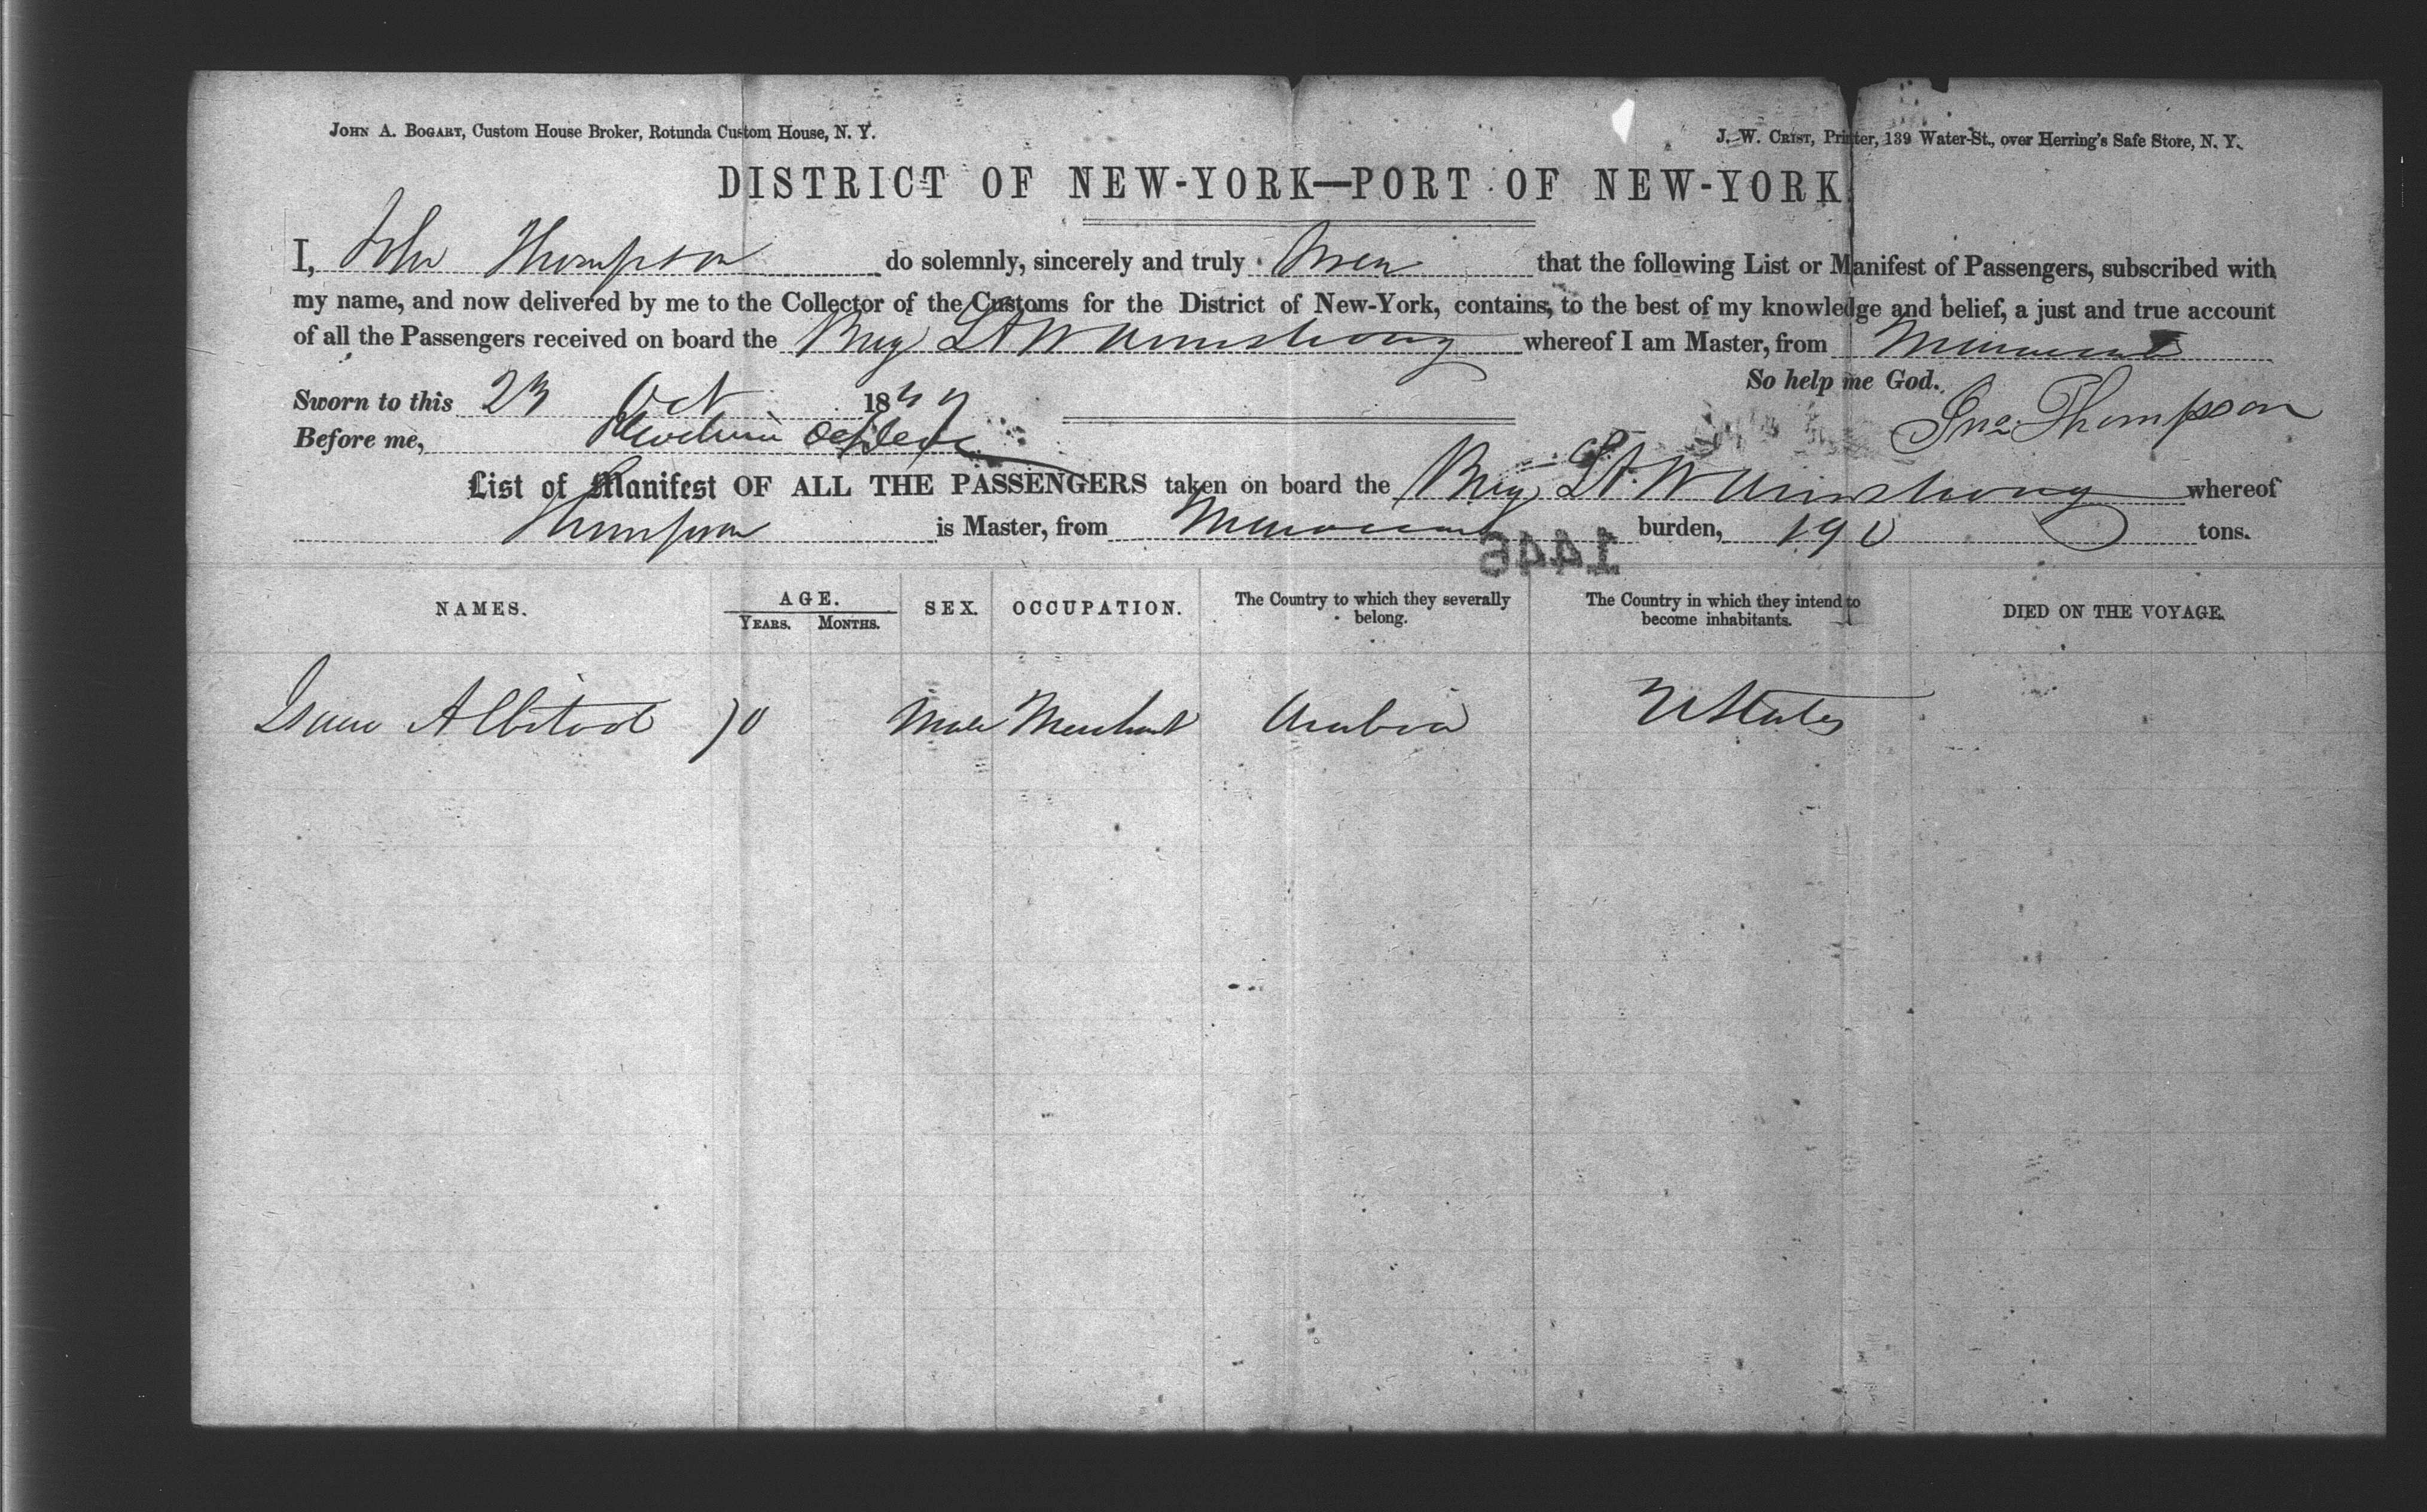 JOHN A. BOGART, Custom House Broker, Rotunda Custom House, N. Y.
J. W. CRIST, Printer, 139 Water-St., over Herring's Safe Store, N. Y.
DISTRICT OF NEW-YORK—PORT OF NEW-YORK.
I, John Thompson do solemnly, sincerely and truly swear that the following List or Manifest of Passengers, subscribed with
my name, and now delivered by me to the Collector of the Customs for the District of New-York, contains, to the best of my knowledge and belief, a just and true account
of all the Passengers received on board the Brig Armstrong whereof I am Master, from
So help me God.
Sworn to this 23 Oct 18
Jno. Thompson
Before me,
List of Manifest OF ALL THE PASSENGERS taken on board the Brig Armstrong whereof
Thompson is Master, from burden, 190 tons.
1446
NAMES. AGE. SEX. OCCUPATION. The Country to which they severally belong. The Country in which they intend to become inhabitants. DIED ON THE VOYAGE.
YEARS. MONTHS.
Isaac Male Merchant Arabia U States